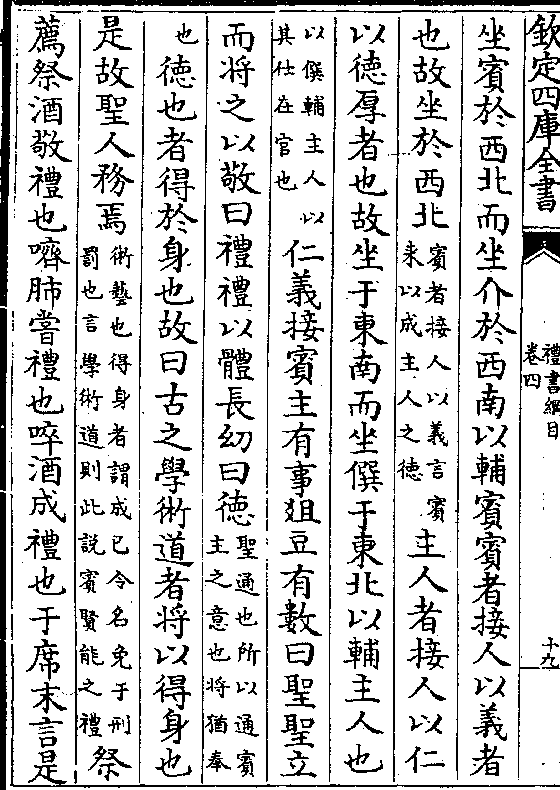 欽定四庫全書
禮書綱目
卷四
十九
坐賓於西北而坐介於西南以輔賓賓者接人以義者
也故坐於西北賓者接人以義言賓
來以成主人之德主人者接人以仁
以德厚者也故坐于東南而坐僎于東北以輔主人也
以僎輔主人以
其仕在官也仁義接賓主有事俎豆有數曰聖聖立
而将之以敬曰禮禮以體長幼曰德聖通也所以通賓
主之意也将猶奉
也德也者得於身也故曰古之學術道者将以得身也
是故聖人務焉術藝也得身者謂成已令名免于刑
罰也言學術道則此説賓賢能之禮祭
薦祭酒敬禮也嚌肺嘗禮也啐酒成禮也于席末言是